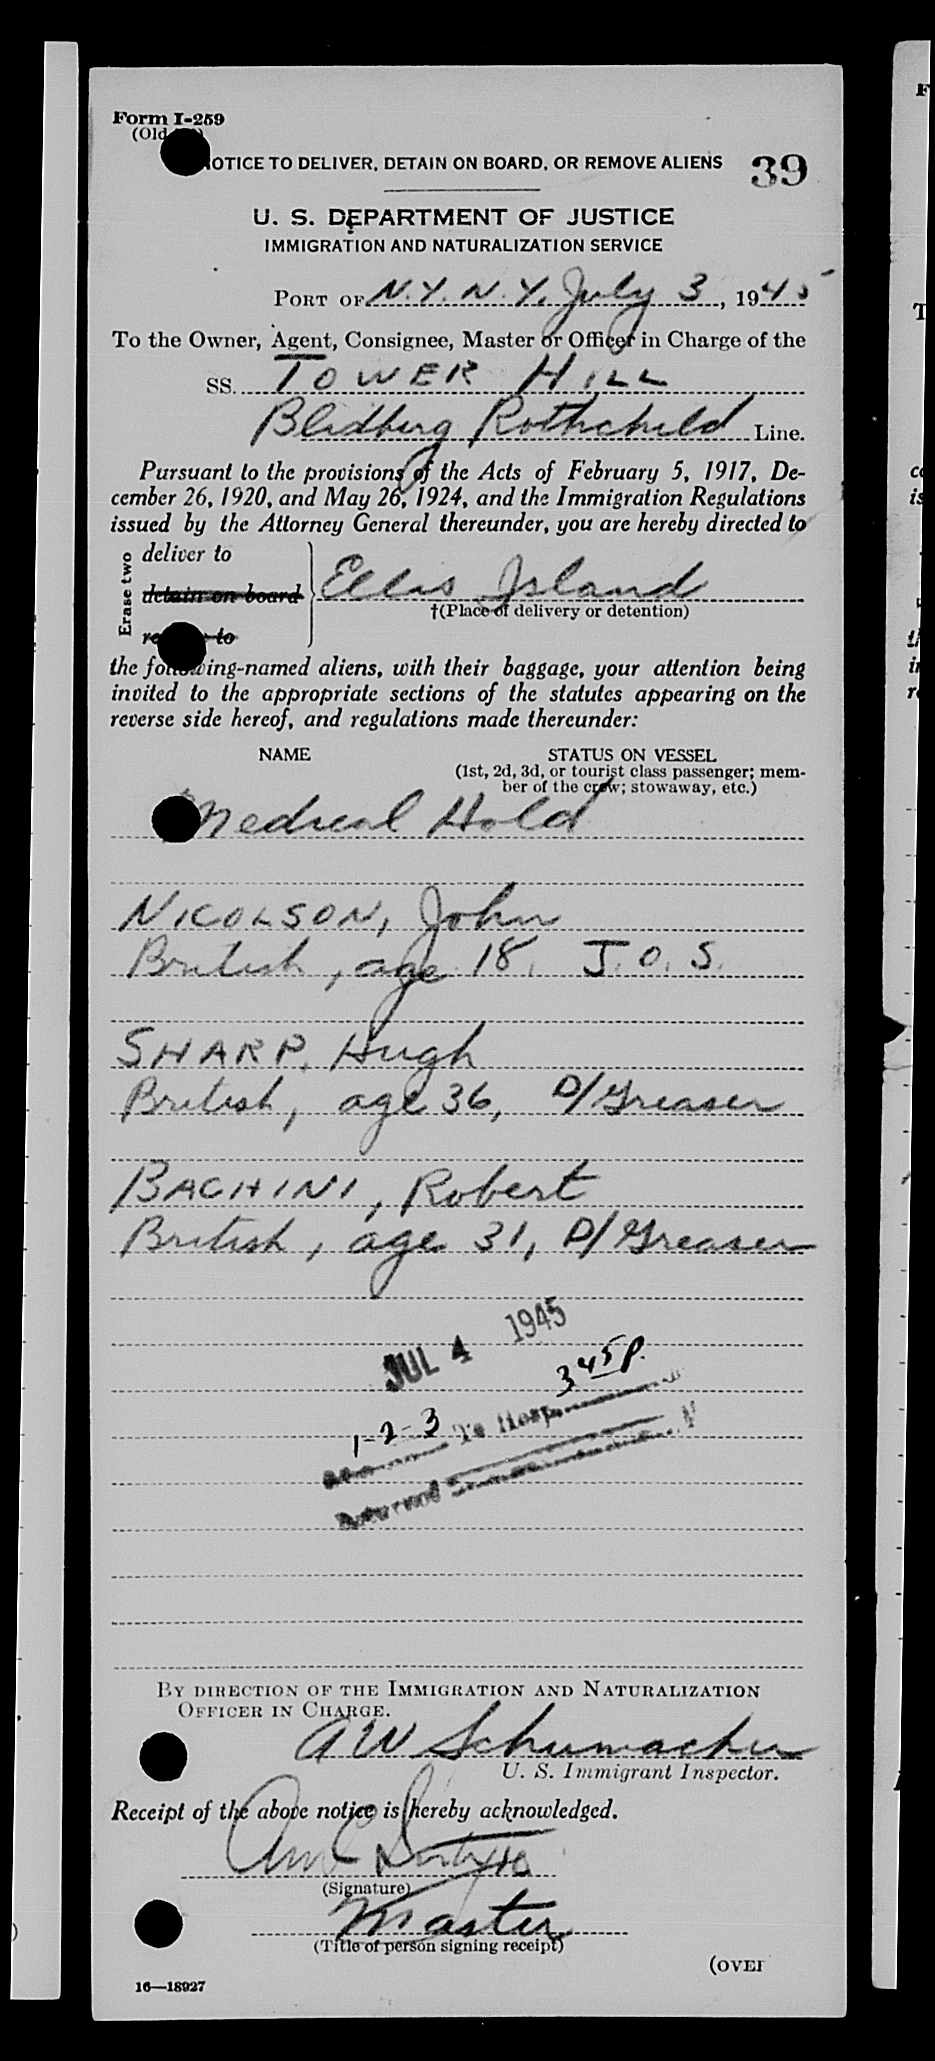 Form I-259
(Old
NOTICE TO DELIVER, DETAIN ON BOARD, OR REMOVE ALIENS
39
U. S. DEPARTMENT OF JUSTICE
IMMIGRATION AND NATURALIZATION SERVICE
PORT OF N.Y. N.Y. July 3, 1945
To the Owner, Agent, Consignee, Master or Officer in Charge of the
SS. TOWER HILL
Blidberg Rothchild Line.
Pursuant to the provisions of the Acts of February 5, 1917, De-
cember 26, 1920, and May 26, 1924, and the Immigration Regulations
issued by the Attorney General thereunder, you are hereby directed to
Erase two
deliver to
detain on board
to
Ellis Island
†(Place of delivery or detention)
the following-named aliens, with their baggage, your attention being
invited to the appropriate sections of the statutes appearing on the
reverse side hereof, and regulations made thereunder:
NAME STATUS ON VESSEL
(1st, 2d, 3d, or tourist class passenger; mem-
ber of the crew; stowaway, etc.)
Medical Hold
NICOLSON, John
British, age 18, J.O.S.
SHARP, Hugh
British, age 36, D/Greaser
BACHINI, Robert
British, age 31, D/Greaser
JUL 4 1945
3 45 P.
1-2-3 To Hosp.
Returned
BY DIRECTION OF THE IMMIGRATION AND NATURALIZATION
OFFICER IN CHARGE.
A W Schumacher
U. S. Immigrant Inspector.
Receipt of the above notice is hereby acknowledged.
(Signature)
Master
(Title of person signing receipt)
(OVER
16—18927